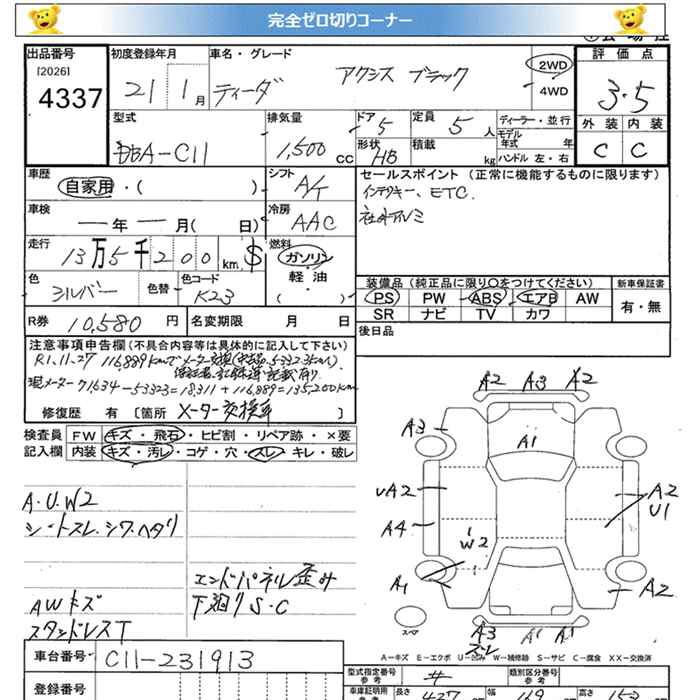 完全ゼロ切りコーナー
出品番号 初度登録年月 車名・グレード 評価点
[2026]
4337
21 1月 ティーダ アクシス ブラック 2WD 3.5
4WD
型式 排気量 ドア 定員 ディーラー・並行 外装 内装
DBA-C11 1,500 CC 5 5人 モデル年式 年 C C
形状 HB 積載 kg ハンドル 左・右
車歴 シフト セールスポイント (正常に機能するものに限ります)
自家用・( ) A/T インテリキー、ETC.
車検 冷房 社外アルミ
ー年ー月( 日) AAC
走行 燃料
13万5千200km $ ガソリン
軽・油
( )
色 色替 色コード
シルバー K23
装備品 (純正品に限り○をつけてください) 新車保証書
PS PW ABS エアB AW 有・無
SR ナビ TV カワ
R券 10,580円 名変期限 月 日 後日品
注意事項申告欄(不具合内容等は具体的に記入して下さい)
R1.11.27 116,889kmでメーター交換
現メーター71,634-53323=18,311+116,889=135,200km
修復歴 有 [箇所 メーター交換車 ]
検査員 FW キズ・飛石・ヒビ割・リペア跡・×要
記入欄 内装 キズ・汚レ・コゲ・穴・スレ・キレ・破レ
A.U.W2
シートスレ.シワ.ヘタリ
エンドパネル歪み
AWキズ 下廻りS.C
スタッドレスT
A2 A3 A2
A3
A1
UA2 A2
U1
A4
W2
A1 A2
スペア
A3 A1 A1
スレ
A-キズ E-エクボ U-凹み W-補修跡 S-サビ C-腐食 XX-交換済
車台番号 C11-231913
型式指定番号 参考 類別区分番号 参考
登録番号
車庫証明用 長さ 427 幅 169 高さ 153